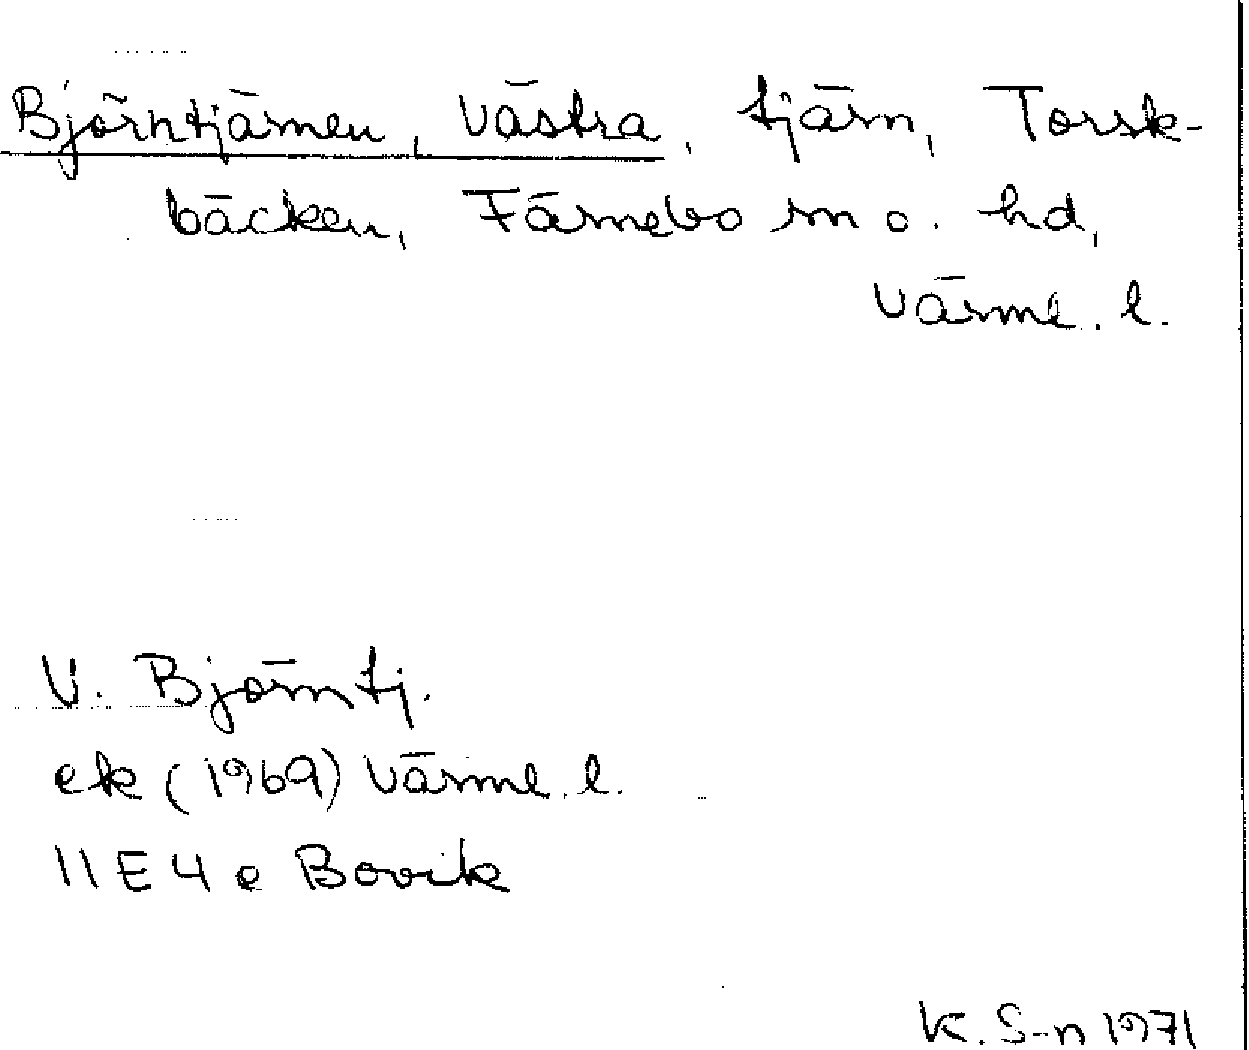 Björntjärnen, Västra, tjärn, Torsk-
bäcken, Färnebo sn o. hd,
Värml. l.
V. Björntj.
ek (1969) Värml. l.
11E4e Bovik
K. S-n 1971